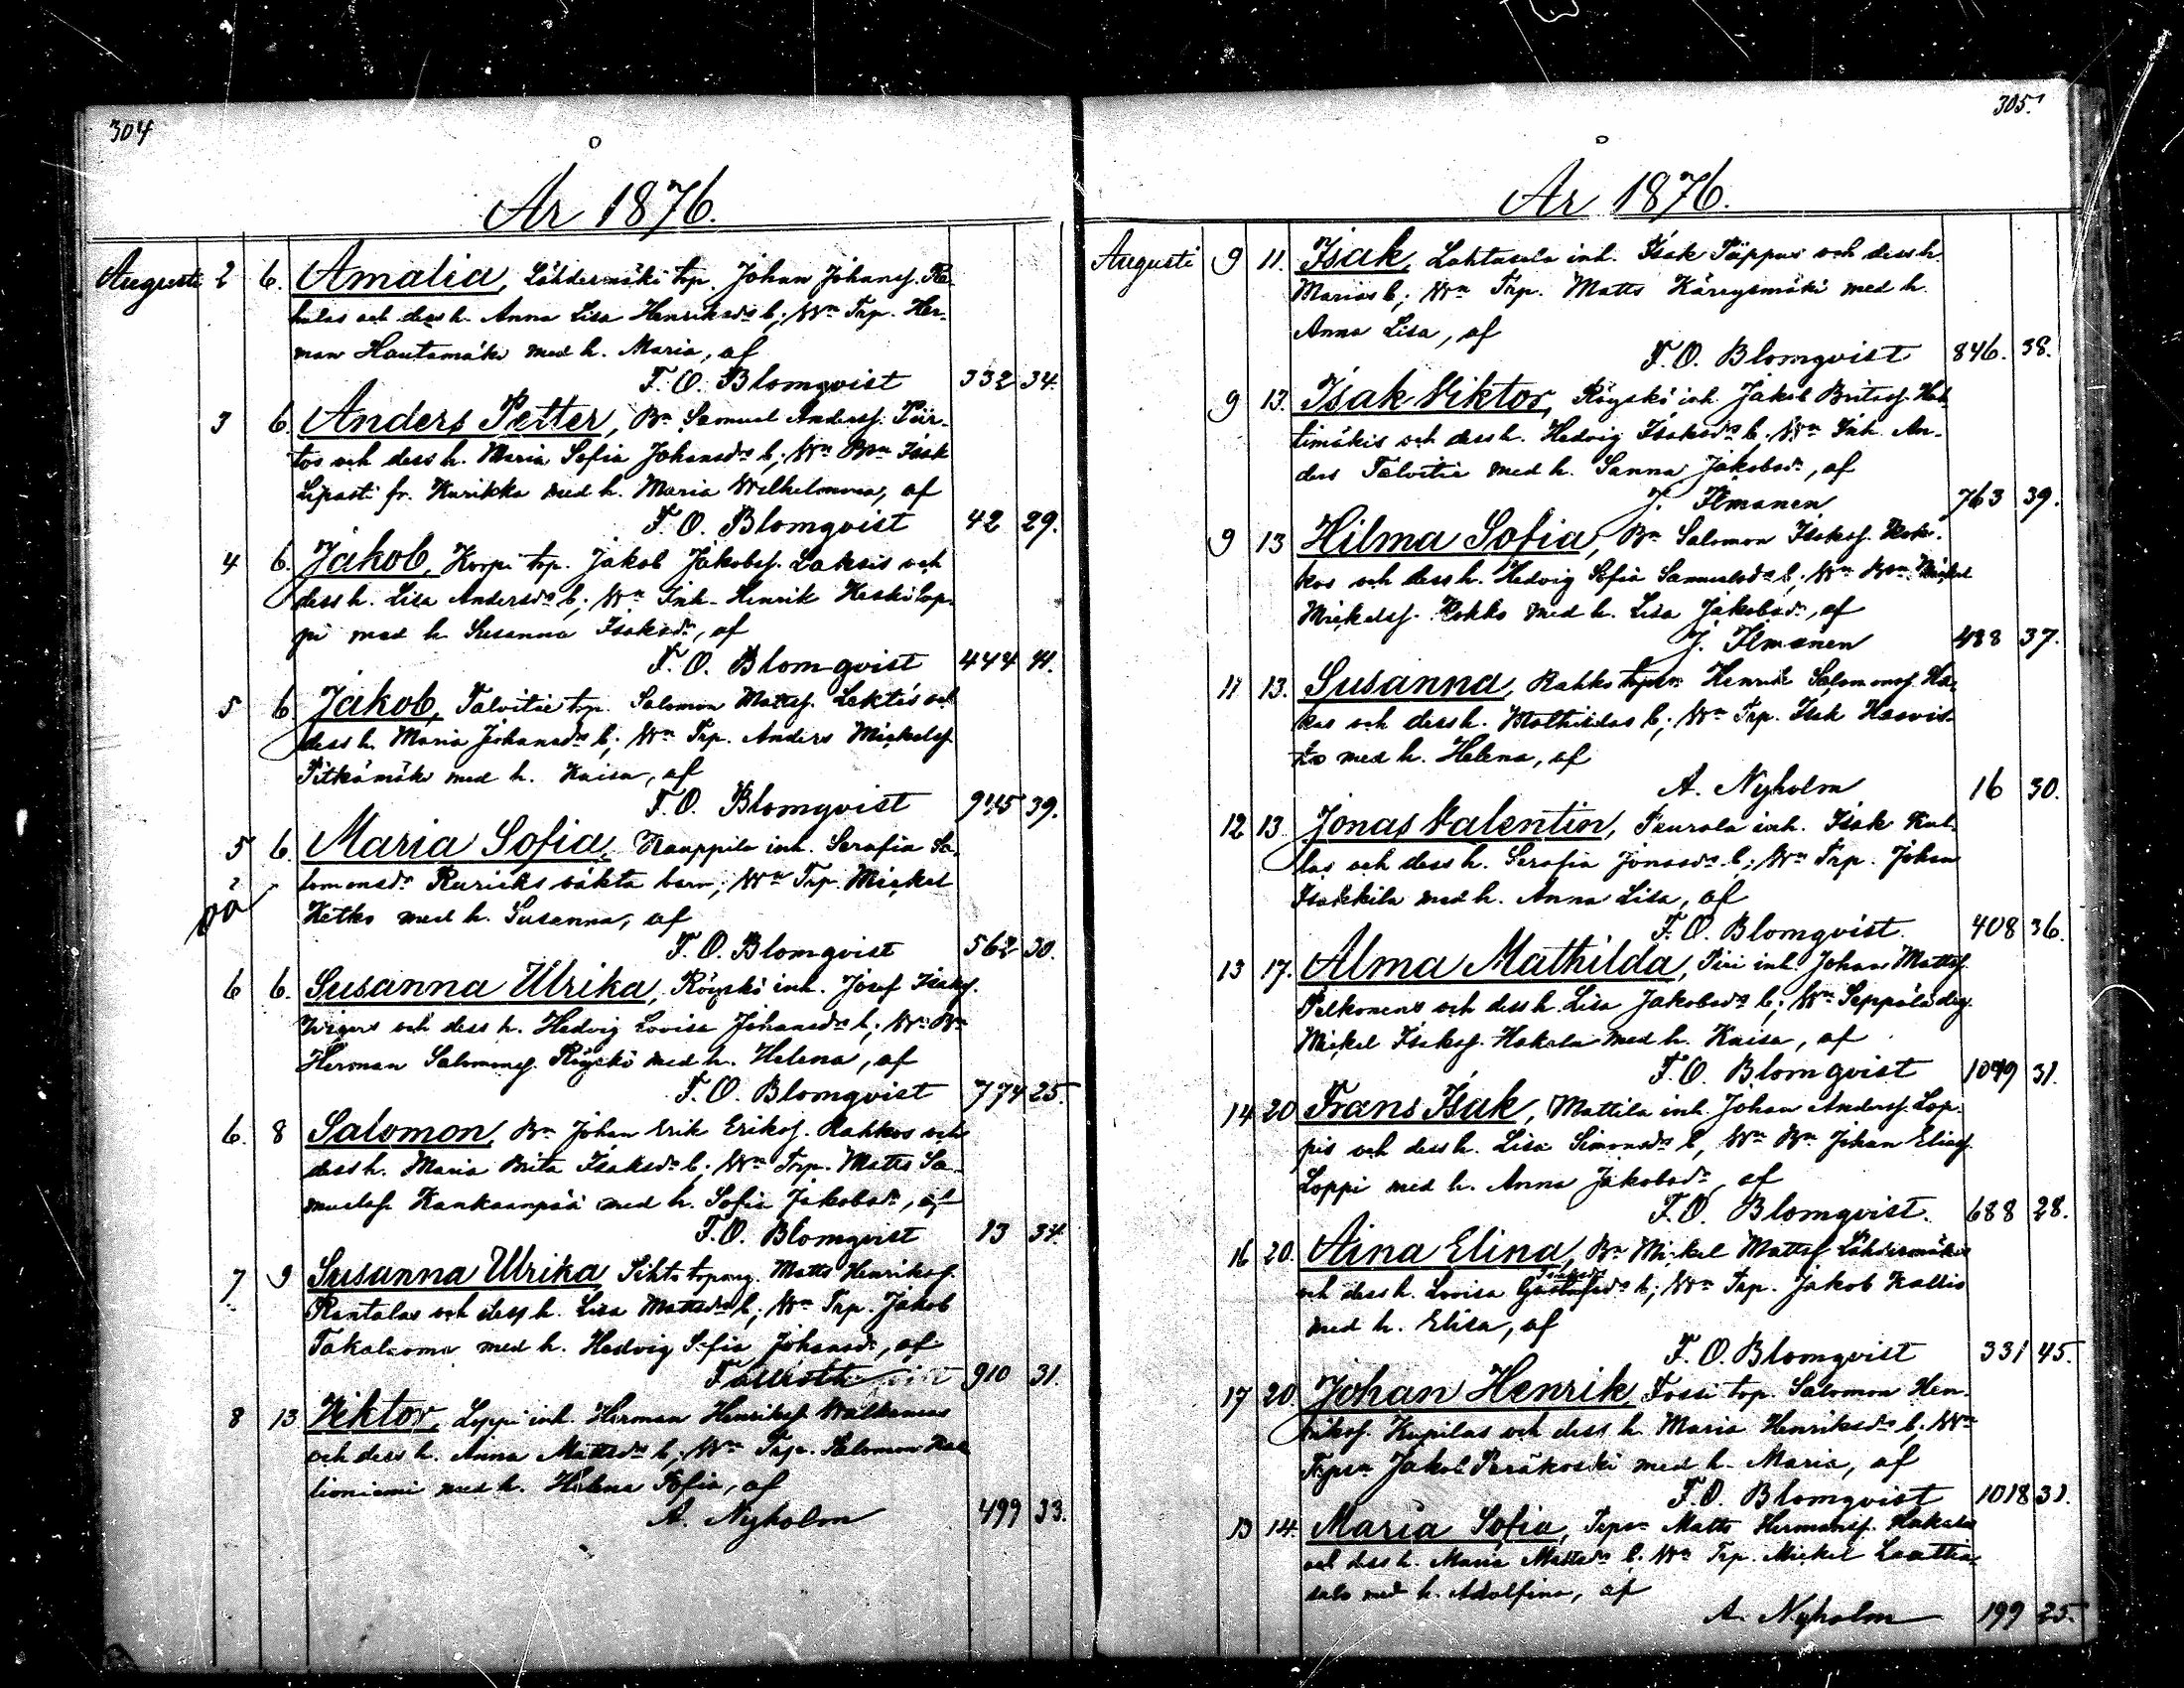 304
År 1876.
Augusti 2 6. Amalia, Lähdermäki trp. Johan Johanss. Re-
kulas och dess h. Anna Lisa Henriksdr b; Wn Trp. Her-
man Hautamäki med h. Maria, af
F. O. Blomqvist 332 34.
3 6. Anders Petter, Bn Samuel Anderss. Piir-
tos och dess h. Maria Sofia Johansdrs b; Wn Bn Isak
Lipasti fr. Kurikka med h. Maria Wilhelmina, af
F. O. Blomqvist 42 29.
4 6. Jakob, Korpi trp. Jakob Jakobss. Laksis och
dess h. Lisa Andersdrs b; Wn Inh. Henrik Keskilop-
pi med h. Susanna Isaksdr, af
F. O. Blomqvist 444 41.
5 6. Jakob, Talvitie trp. Salomon Matts. Lektis och
dess h. Maria Johansdrs b; Wn Trp. Anders Mickelss.
Pitkämäki med h. Kaisa, af
F. O. Blomqvist 945 39.
5 6. Maria Sofia, Kauppila inh. Serafia Sa-
lomonsdr Ruricks oäkta barn; Wn Trp. Mickel
oä
Ketko med h. Susanna, af
F. O. Blomqvist 562 30.
6 6. Susanna Ulrika, Röyskö inh. Josef Isakss.
och dess h. Hedvig Lovisa Johansdrs b; Wn Bn
Herman Salomonss. Röyskö med h. Helena, af
F. O. Blomqvist 774 25.
6. 8 Salomon, Bn Johan Erik Erikss. Rahkos och
dess h. Maria Brita Isaksdrs b; Wn Trp. Matts Sa-
muelss. Kankaanpää med h. Sofia Jakobsdr, af
F. O. Blomqvist 13 34.
7 9 Susanna Ulrika, Matts Henrikss.
Rantalas och dess h. Lisa Mattsdrs b; Wn Trp. Jakob
Takaluoma med h. Hedvig Sofia Johansdr, af
910 31.
8 13 Viktor, Loppi inh. Herman Henrikss. Walkamas
och dess h. Anna Mattsdrs b; Wn Trp. Salomon Kal-
lioniemi med h. Helena Sofia, af
A. Nyholm 499 33.
305.
År 1876.
Augusti 9 11. Isak, Lahtuala inh. Isak Täppus och dess h.
Marias b; Wn Trp. Matts Käreysmäki med h.
Anna Lisa, af
F. O. Blomqvist 846. 38.
9 13. Isak Viktor, Röyskö inh. Jakob Britass. Hau-
timäkis och dess h. Hedvig Isaksdrs b; Wn Inh. An-
ders Talvitie med h. Sanna Jakobsdr, af
J. Ilmanen 763 39.
9 13 Hilma Sofia, Bn Salomon Isakss. Kok-
kos och dess h. Hedvig Sofia Samuelsdrs b; Wn Bn Mickel
Mickelss. Kokko med h. Lisa Jakobsdr, af
J. Ilmanen 488 37.
11 13. Susanna, Rahko Henrik Salomonss. Ha-
kas och dess h. Mathildas b; Wn Trp. Isak Haavis-
to med h. Helena, af
A. Nyholm 16 30.
12 13. Jonas Valentin, Peurala inh. Isak Kul-
las och dess h. Serafia Jonasdrs b; Wn Trp. Johan
med h. Anna Lisa, af
F. O. Blomqvist. 408 36.
13 17. Alma Mathilda, Piri inh. Johan Mattss.
Pelkonens och dess h. Lisa Jakobsdrs b; Wn Seppälä
Mickel Isakss. Hakala med h. Kaisa, af
F. O. Blomqvist 1049 31.
14 20 Frans Isak, Mattila inh. Johan Anderss. Lop-
pis och dess h. Lisa Simonsdrs b, Wn Bn Johan Eliass.
Loppi med h. Anna Jakobsdr, af
F. O. Blomqvist. 688 28.
16 20. Aina Elina, Bn Mickel Mattss. Lähdesmäkis
och dess h. Lovisa Isaksdrs b; Wn Trp. Jakob Kallio
med h. Elisa, af
F. O. Blomqvist 331 45.
17 20. Johan Henrik, Fossi trp. Salomon Hen-
rikss. Kupilas och dess h. Maria Henriksdrs b. Wn
Jakob Peräkoski med h. Maria, af
F. O. Blomqvist 1018 31.
13 14. Maria Sofia, Matts Hermanss. Hakalas
och dess h. Maria Mattsdrs b; Wn Trp. Mickel Luotha-
salo med h. Adolfina, af
A. Nyholm 199 25.